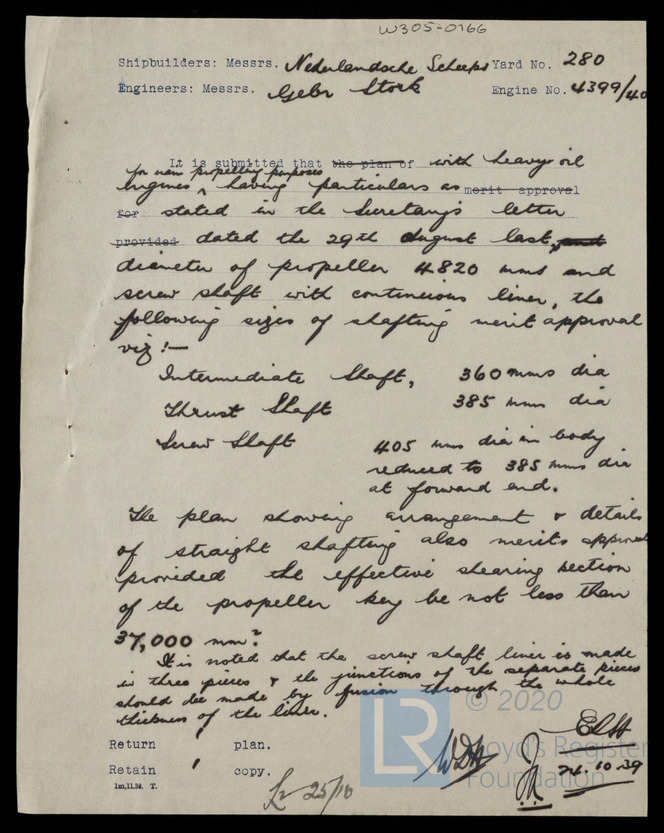 W305-0166
Shipbuilders: Messrs. Nederlandsche Scheeps Yard No. 280
Engineers: Messrs. Gebr Stork Engine No. 4399/40
It is submitted that the plan of with heavy oil
for main propelling purposes
engines ^ having particulars as merit approval
for stated in the Secretary's letter
provided dated the 29th August last, and
diameter of propeller 4820 mms and
screw shaft with continuous liner, the
following sizes of shafting merit approval
viz:—
Intermediate Shaft, 360 mms dia
Thrust Shaft 385 mms dia
Screw Shaft 405 mms dia in body
reduced to 385 mms dia
at forward end.
The plan showing arrangement & details
of straight shafting also merits approval
provided the effective shearing section
of the propeller key be not less than
37,000 mm².
It is noted that the screw shaft liner is made
in three pieces & the junctions of the separate pieces
should be made by fusion through the whole
thickness of the liner.
© 2020
LR Lloyd's Register
Foundation
Return 1 plan.
Retain copy.
1m,11,38. T.
25/10
24.10.39